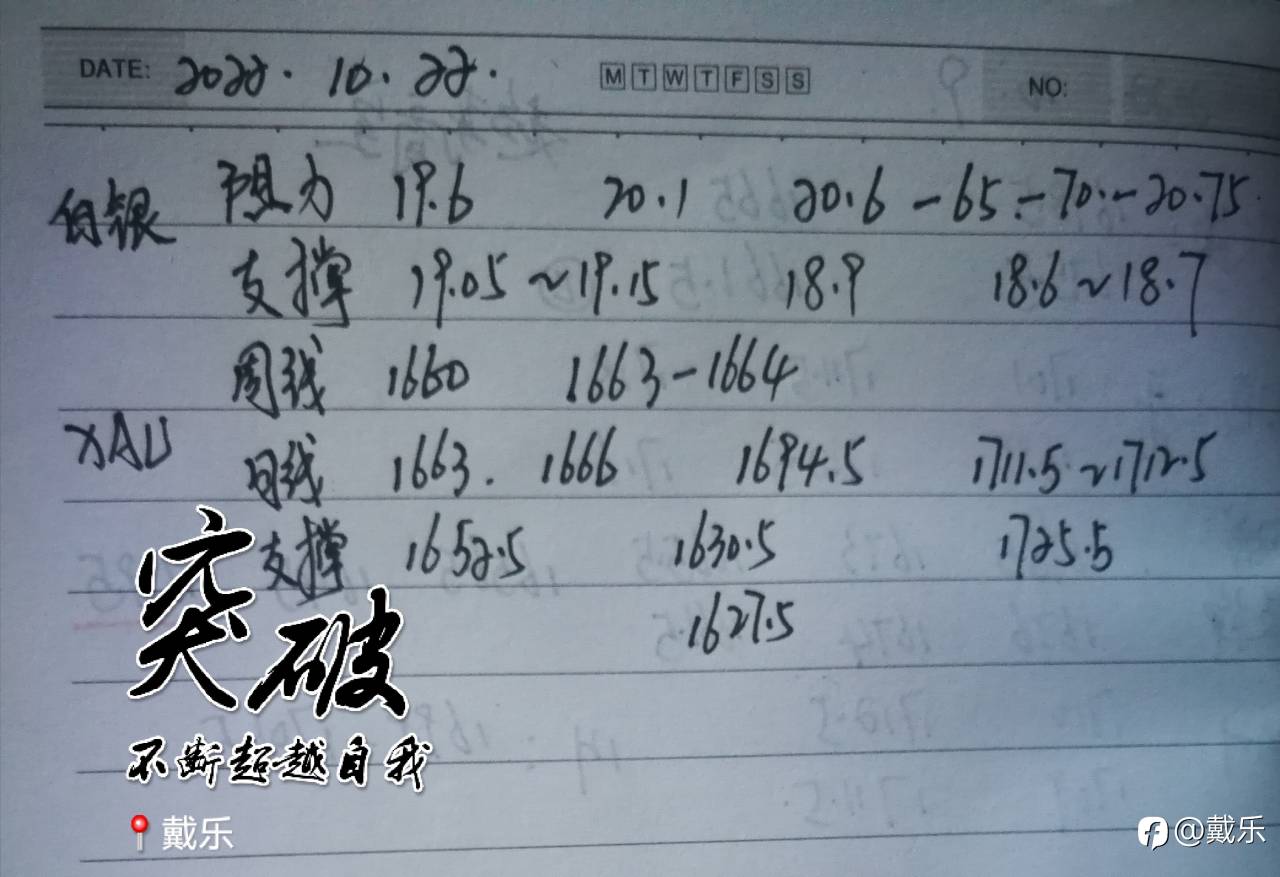 DATE: 2022.10.22. M T W T F S S NO:
白银 阻力 19.6 20.1 20.6-65-70-20.75
支撑 19.05~19.15 18.9 18.6~18.7
周线 1660 1663-1664
XAU 日线 1663. 1666 1694.5 1711.5~1712.5
支撑 1652.5 1630.5 1725.5
1627.5
突破
不断超越自我
戴乐
@戴乐